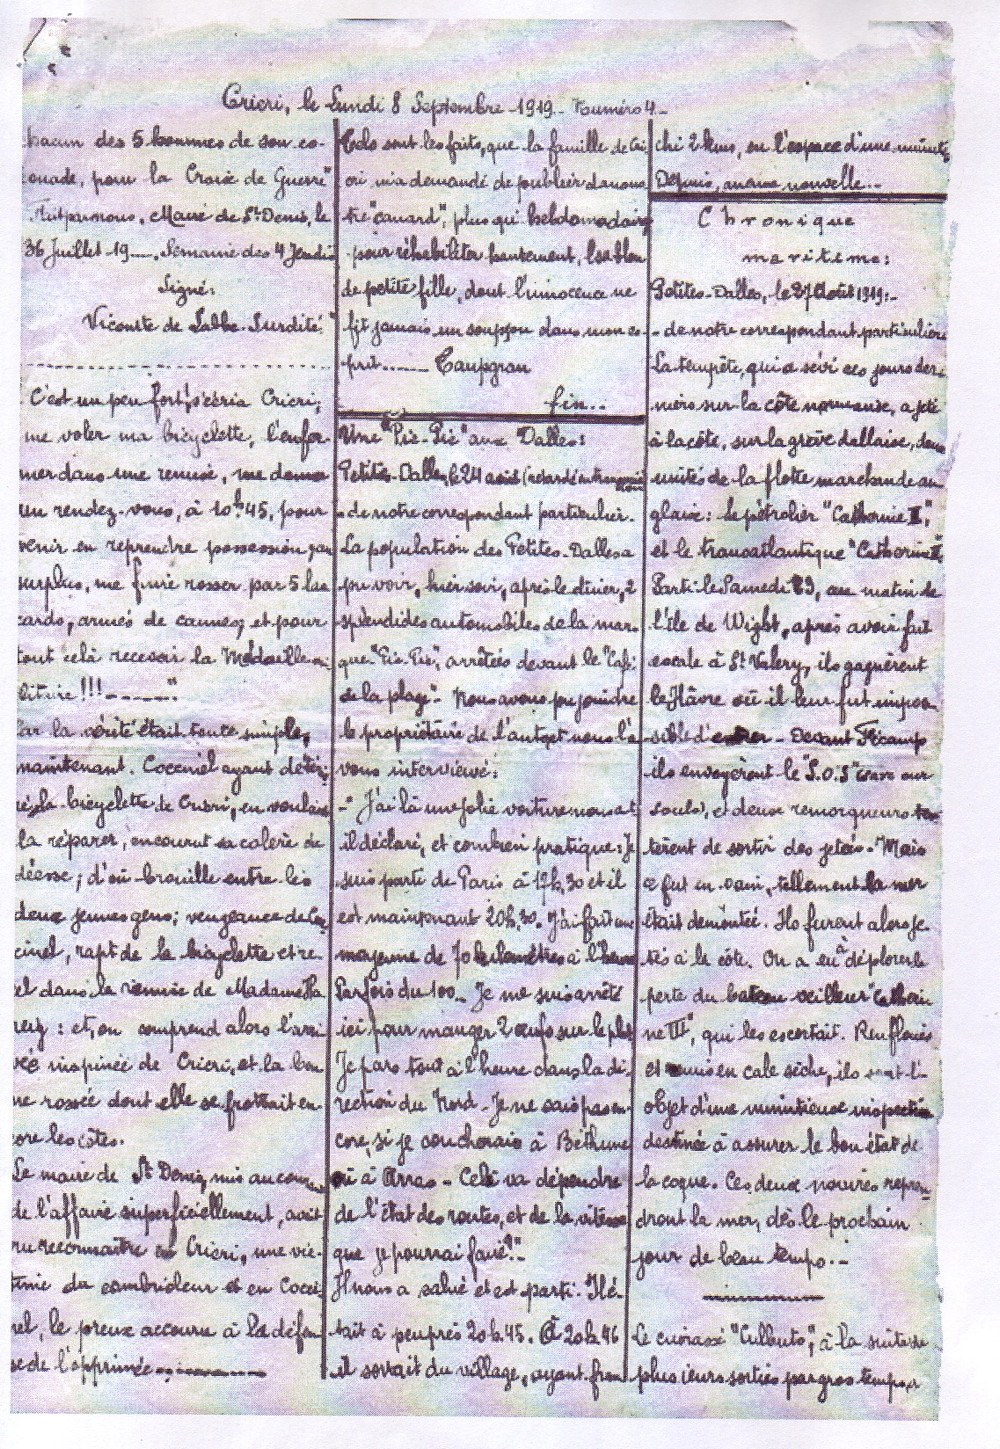 Cricri, le Lundi 8 Septembre 1919.- Numéro 4-
chacun des 5 hommes de son es-
couade, pour la Croix de Guerre"
Maire de St Denis, le
36 Juillet 19__, Semaine des 4 Jeudis
Signé:
Vicomte de Labbe-Surdité."
C'est un peu fort, s'écria Cricri,
me voler ma bicyclette, l'enfer
mer dans une remise, me donner
un rendez-vous, à 10h45, pour
venir en reprendre possession, par
surplus, me faire rosser par 5 las
cards, armés de cannes, et pour
tout celà recevoir la Médaille mi
litaire!!!------"
Car la vérité était toute simple,
maintenant. Coccinel ayant détér
ré la bicyclette de Cricri, en voulant
la réparer, encourut sa colère de
déesse; d'où brouille entre les
deux jeunes gens; vengeance de Coc
cinel, rapt de la bicyclette et re
el dans la remise de Madame
: et, on comprend alors l'arri
vée inopinée de Cricri, et la bon
ne rossée dont elle se frottait en-
core les côtes.
Le maire de St Denis, mis au courant
de l'affaire superficiellement, avait
cru reconnaître en Cricri, une vic-
time du cambrioleur et en Cocci
nel, le preux accouru à la défen
se de l'opprimée
Tels sont les faits, que la famille de Cri
cri m'a demandé de publier dans no
tre "canard", plus qu'hebdomadaire
pour réhabiliter hautement, les blon
de petite fille, dont l'innocence ne
fit jamais un soupçon dans mon es-
prit...... Taupgran
fin...
Une "Pic-Pic" aux Dalles:
Petites-Dalles, le 24 août (retardé en transmission)
- de notre correspondant particulier.
La population des Petites-Dalles a
pu voir, hier soir, après le dîner, 2
splendides automobiles de la mar-
que "Pic-Pic", arrêtées devant le "Café
de la plage"- Nous avons pu joindre
le propriétaire de l'auto, et nous l'a
vons interviewé:
-" J'ai là une jolie voiture nous a t
il déclaré, et combien pratique: Je
suis parti de Paris à 17h,30 et il
est maintenant 20h,30. J'ai fait une
moyenne de 70 kilomètres à l'heure
Parfois du 100_ Je me suis arrêté
ici pour manger 2 œufs sur le plat
Je pars tout à l'heure dans la di
rection du Nord- Je ne sais pas en-
core, si je coucherais à Béthune
ou à Arras- Celà va dépendre
de l'état des routes, et de la vitesse
que je pourrai faire"-
Il nous a salué et est parti. Il é-
tait à peu près 20h.45. A 20h 46
il sortait du village, ayant fran
chi 2 kms, en l'espace d'une minute
Depuis, aucune nouvelle...
Chronique
maritime:
Petites-Dalles, le 27 Août 1919:-
- de notre correspondant particulier
La tempête, qui a sévi ces jours der
niers sur la côte normande, a jeté
à la côte, sur la grève dallaise, deux
unités de la flotte marchande an
glaise: le pétrolier "Catherine II",
et le transatlantique "Catherine I"
Parti le Samedi 23, au matin de
l'île de Wight, après avoir fait
escale à St Valery, ils gagnèrent
le Hâvre où il leur fut impos
sible d'entrer- Devant Fécamp
ils envoyèrent le "S.O.S" (save our
souls), et deux remorqueurs ten
tèrent de sortir des jetées- Mais
ce fut en vain, tellement la mer
était démontée. Ils furent alors je
tés à la côte. On a eu à déplorer la
perte du bateau veilleur "Catheri
ne III", qui les escortait. Renfloués
et mis en cale sèche, ils sont l'-
objet d'une minutieuse inspection
destinée à assurer le bon état de
la coque. Ces deux navires repren
dront la mer, dès le prochain
jour de beau temps.-
Le cuirassé "Culbuto", à la suite de
plusieurs sorties par gros temps, a